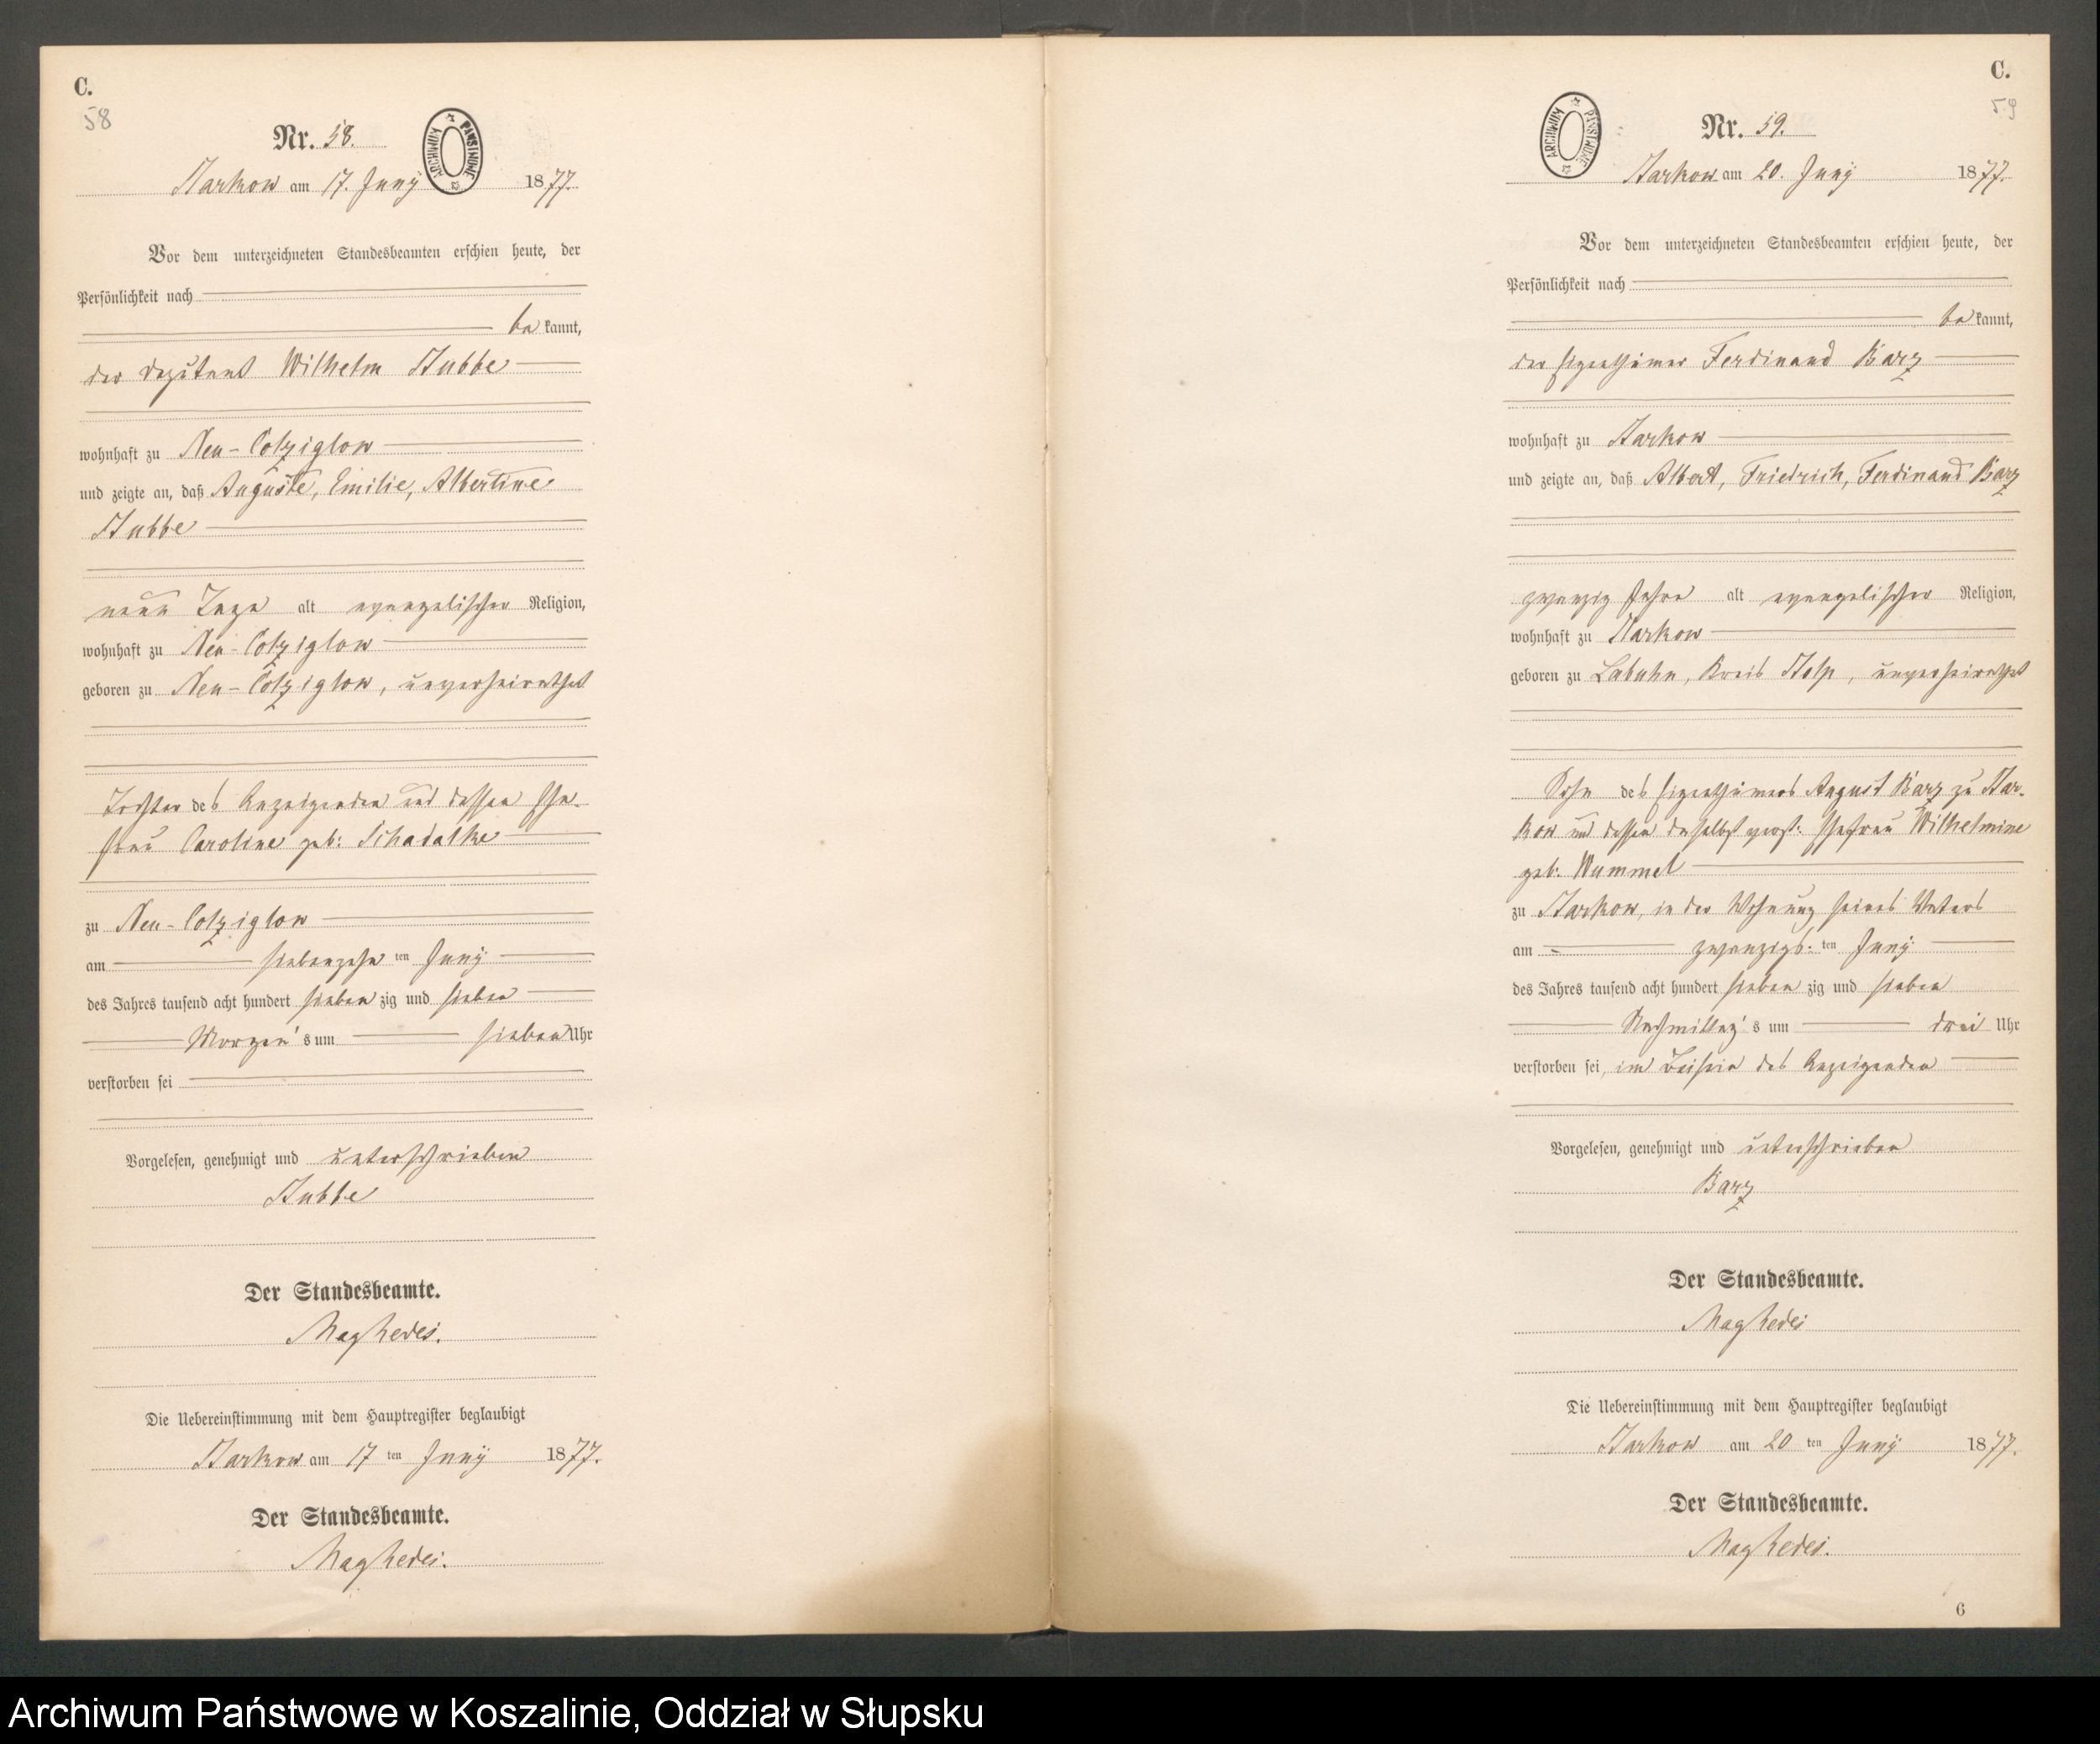 C.
58
Nr. 58.
ARCHIWUM PAŃSTWOWE
Starkow am 17. Juny 1877.
Vor dem unterzeichneten Standesbeamten erschien heute, der
Persönlichkeit nach
be kannt,
der Deputant Wilhelm Stubbe
wohnhaft zu Neu-Cotziglow
und zeigte an, daß Auguste, Emilie, Albertine
Stubbe
neun Tage alt evangelischer Religion,
wohnhaft zu Neu-Cotziglow
geboren zu Neu-Cotziglow, unverheirathet
Tochter des Anzeigenden und dessen Ehe-
frau Caroline geb: Schadatke
zu Neu-Cotziglow
am siebenzehn ten Juny
des Jahres tausend acht hundert sieben zig und sieben
Morgen's um sieben Uhr
verstorben sei
Vorgelesen, genehmigt und unterschrieben
Stubbe
Der Standesbeamte.
Die Uebereinstimmung mit dem Hauptregister beglaubigt
Starkow am 17 ten Juny 1877.
Der Standesbeamte.
C.
59
Nr. 59.
ARCHIWUM PAŃSTWOWE
Starkow am 20. Juny 1877.
Vor dem unterzeichneten Standesbeamten erschien heute, der
Persönlichkeit nach
be kannt,
der Eigenthümer Ferdinand Barz
wohnhaft zu Starkow
und zeigte an, daß Albert, Friedrich, Ferdinand Barz
zwanzig Jahre alt evangelischer Religion,
wohnhaft zu Starkow
geboren zu Labuhn, Kreis Stolp, unverheirathet
Sohn des Eigenthümers August Barz zu Star-
kow und dessen daselbst verst: Ehefrau Wilhelmine
geb: Wummel
zu Starkow, in der Wohnung seines Vaters
am zwanzigs: ten Juny
des Jahres tausend acht hundert sieben zig und sieben
Nachmittag's um drei Uhr
verstorben sei, im Beisein des Anzeigenden
Vorgelesen, genehmigt und unterschrieben
Barz
Der Standesbeamte.
Die Uebereinstimmung mit dem Hauptregister beglaubigt
Starkow am 20 ten Juny 1877.
Der Standesbeamte.
6
Archiwum Państwowe w Koszalinie, Oddział w Słupsku